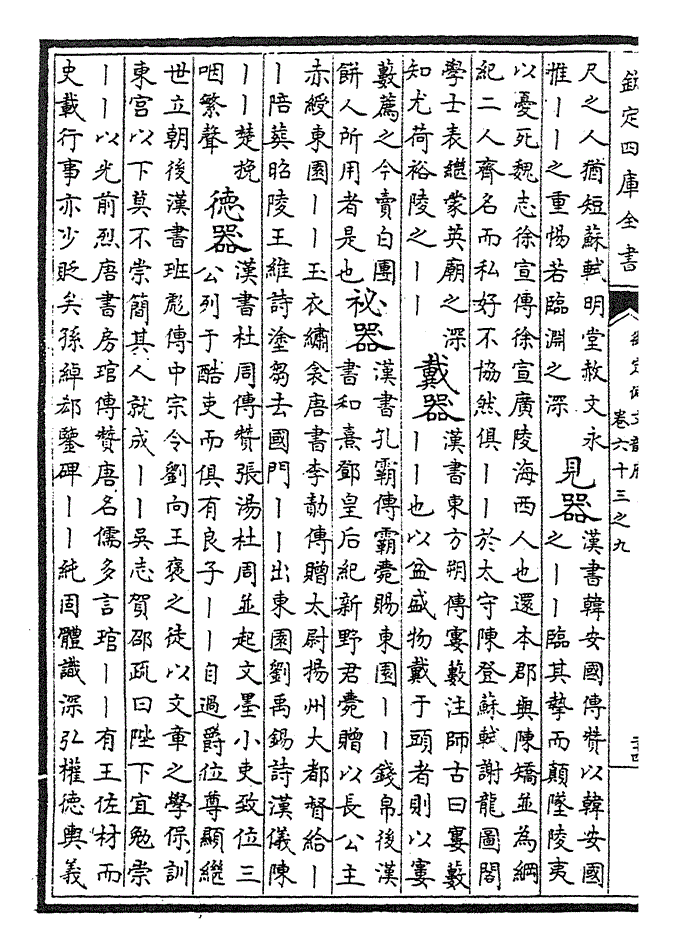 欽定四庫全書
卷六十三之九
尺之人猶短蘇軾明堂赦文永
惟丨丨之重惕若臨淵之深
見器
漢書韓安國傳贊以韓安國
之丨丨臨其摯而顛墜陵夷
以憂死魏志徐宣傳徐宣廣陵海西人也還本郡與陳矯並為綱
紀二人齊名而私好不協然俱丨丨於太守陳登蘇軾謝龍圖閣
學士表繼蒙英廟之深
知尤荷裕陵之丨丨
戴器
漢書東方朔傳寠藪注師古曰寠藪
丨丨也以盆盛物戴于頭者則以寠
藪薦之今賣白團
餅人所用者是也
祕器
漢書孔霸傳霸薨賜東園丨丨錢帛後漢
書和熹鄧皇后紀新野君薨贈以長公主
赤綬東園丨丨玉衣繡衾唐書李勣傳贈太尉揚州大都督給丨
丨陪葬昭陵王維詩塗芻去國門丨丨出東園劉禹錫詩漢儀陳
丨丨楚挽
咽繁聲
徳器
漢書杜周傳贊張湯杜周並起文墨小吏致位三
公列于酷吏而俱有良子丨丨自過爵位尊顯繼
世立朝後漢書班彪傳中宗令劉向王褒之徒以文章之學保訓
東宫以下莫不崇簡其人就成丨丨吳志賀邵疏曰陛下宜勉崇
丨丨以光前烈唐書房琯傳贊唐名儒多言琯丨丨有王佐材而
史載行事亦少貶矣孫綽郄鑒碑丨丨純固體識深弘權德輿義